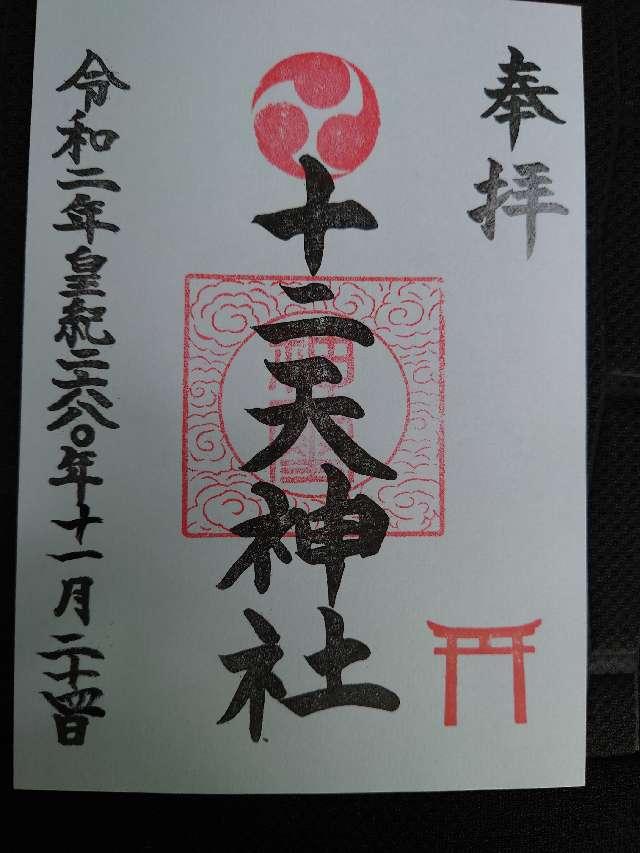 奉拝
十二天神社
令和二年皇紀二六八〇年十一月二十四日